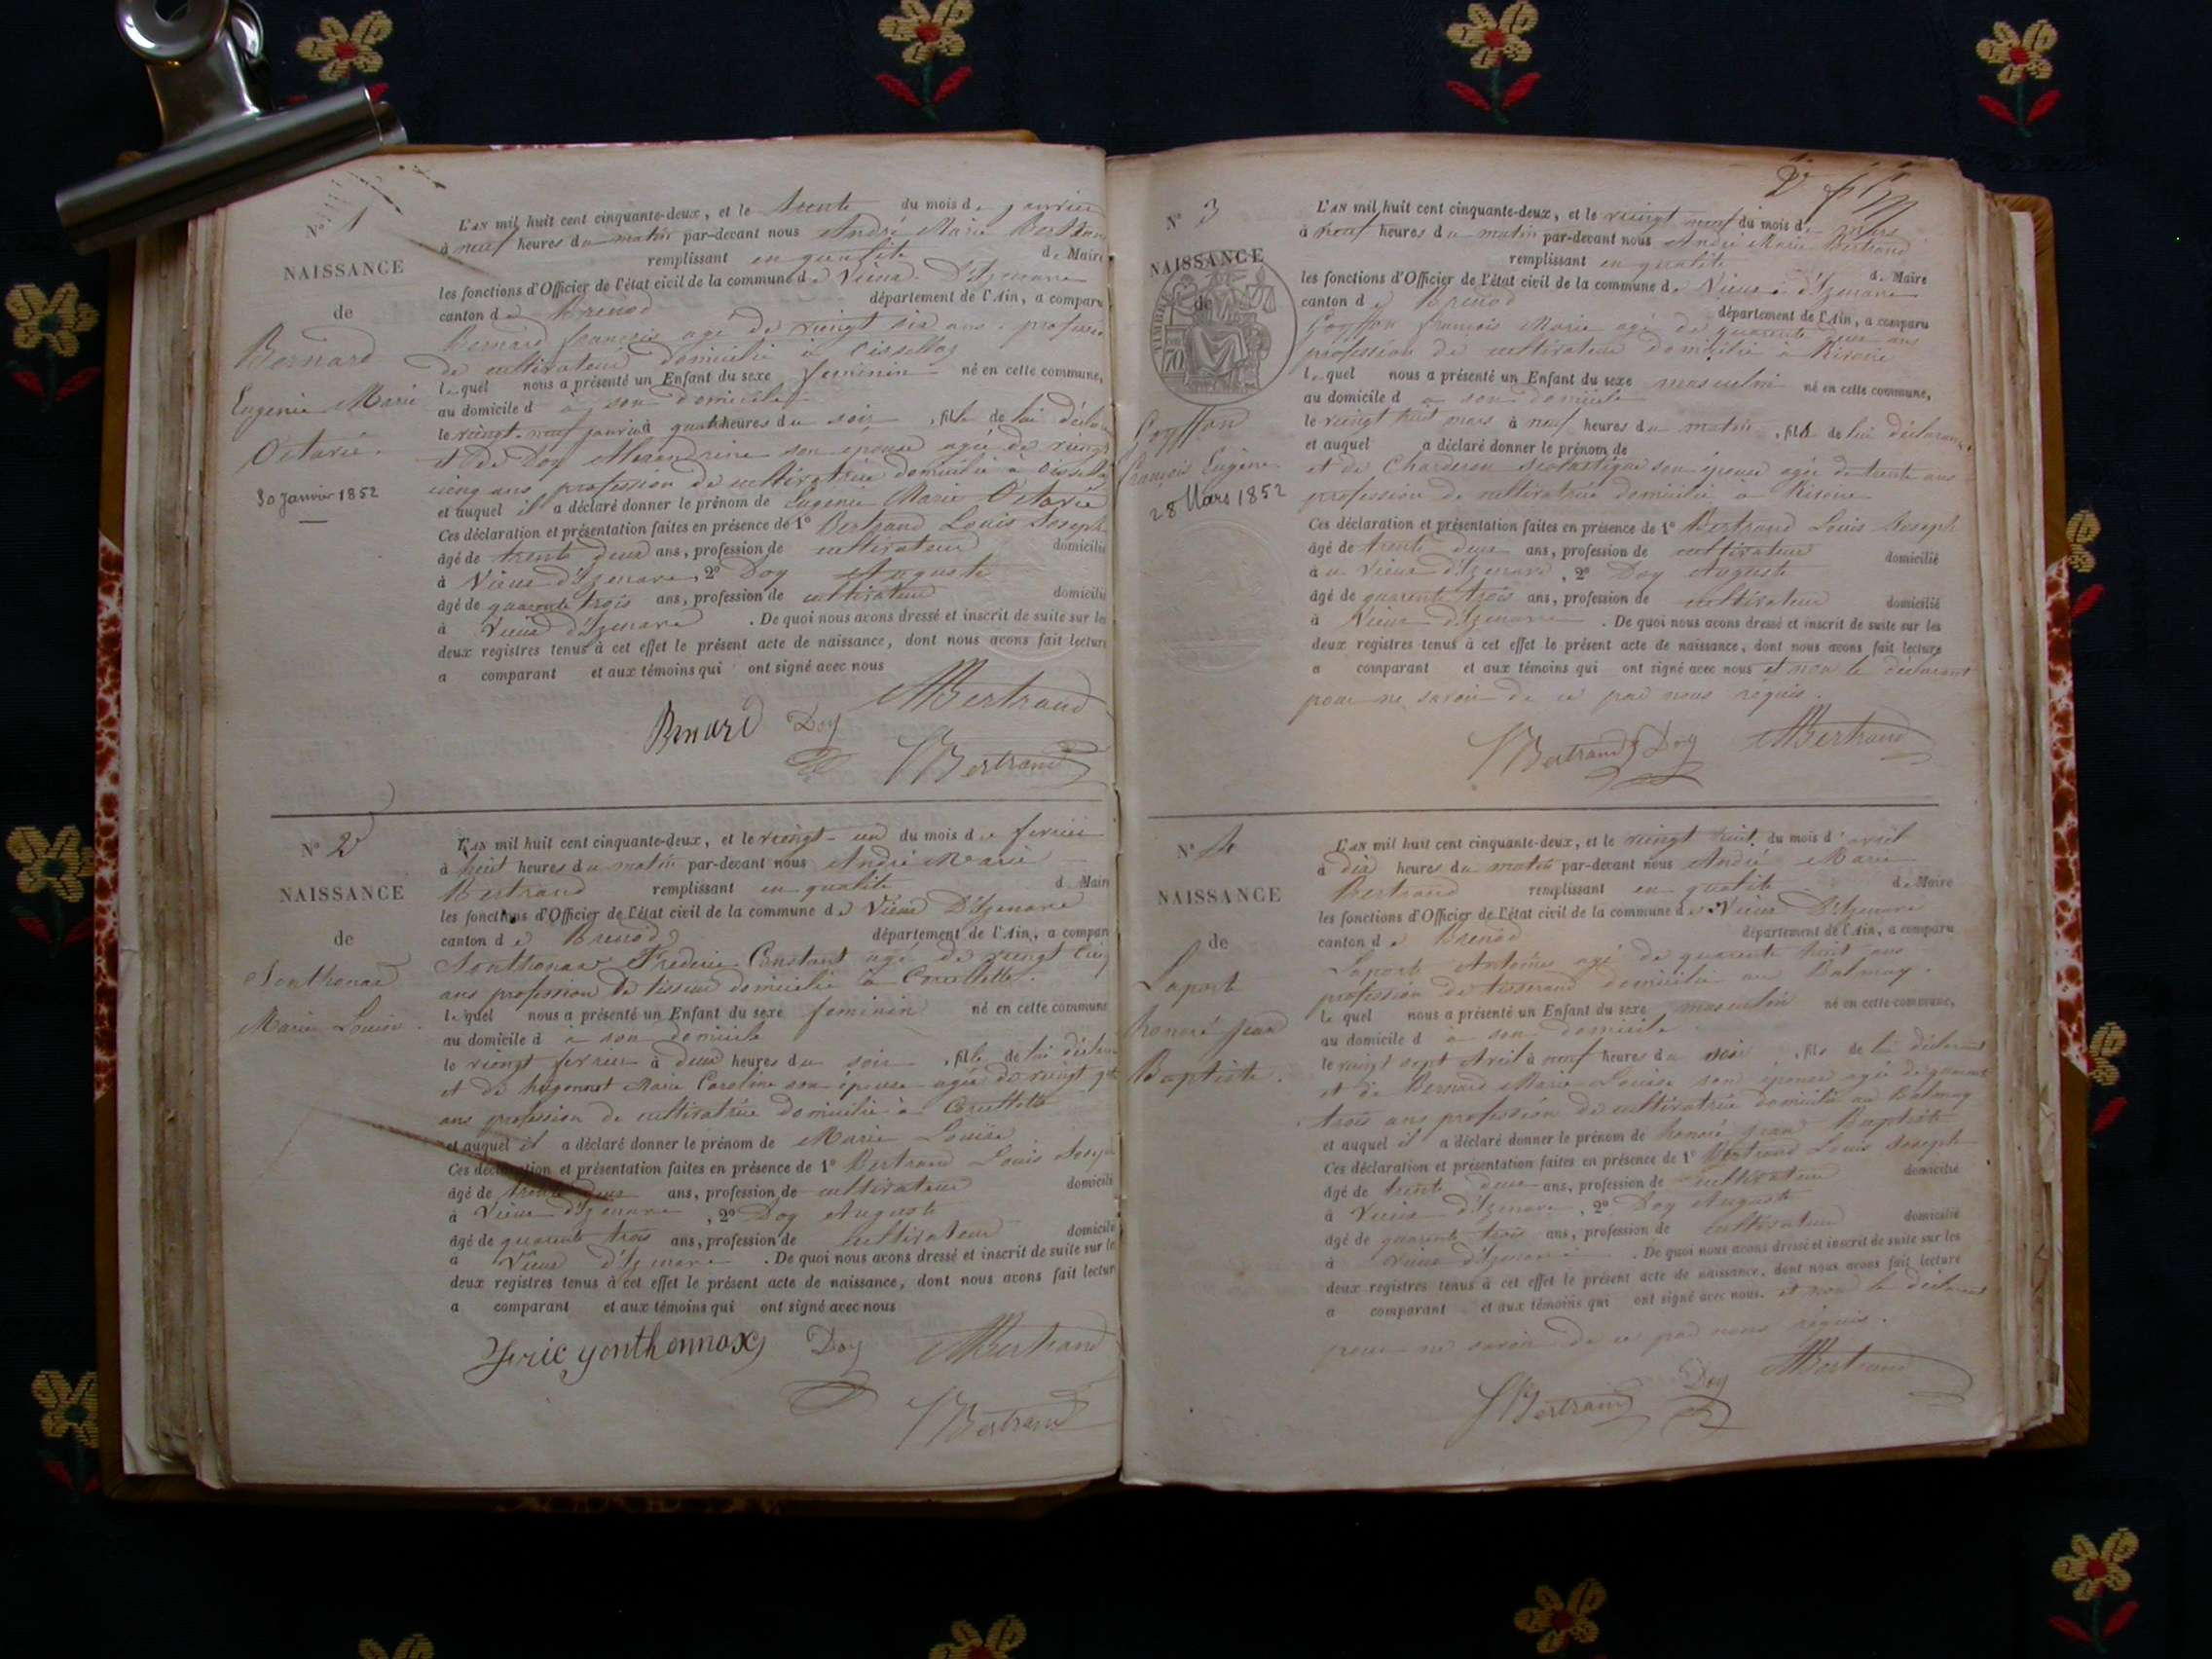 N° 1
NAISSANCE
de
Bernard
Eugenie Marie
Octavie.
30 Janvier 1852
L'AN mil huit cent cinquante-deux, et le trente du mois de janvier
à neuf heures du matin par-devant nous André Marie Bertrand
remplissant en qualité de Maire
les fonctions d'Officier de l'état civil de la commune de Vieux D'Izenave
canton de Brenod département de l'Ain, a comparu
Bernard françois agé de vingt six ans profession
de cultivateur domicilié à
lequel nous a présenté un Enfant du sexe feminin né en cette commune,
au domicile d à son domicile
le vingt-neuf janvier à quatre heures du soir, fille de lui déclarant
et de Doy son épouse agée de vingt
cinq ans profession de cultivatrice domicilié à
et auquel il a déclaré donner le prénom de Eugenie Marie Octavie
Ces déclaration et présentation faites en présence de 1° Bertrand Louis Joseph
âgé de trente deux ans, profession de cultivateur domicilié
à Vieux d'Izenave, 2° Doy Auguste
âgé de quarente trois ans, profession de cultivateur domicilié
à Vieux d'Izenave . De quoi nous avons dressé et inscrit de suite sur les
deux registres tenus à cet effet le présent acte de naissance, dont nous avons fait lecture
a comparant et aux témoins qui ont signé avec nous
AMBertrand
Bernard Doy
LBertrand
N° 2
NAISSANCE
de
Jonthonax
Marie Louise.
L'AN mil huit cent cinquante-deux, et le vingt-un du mois de fevrier
à huit heures du matin par-devant nous André Marie
Bertrand remplissant en qualité d Maire
les fonctions d'Officier de l'état civil de la commune de Vieux D'Izenave
canton de Brenod département de l'Ain, a comparu
Jonthonax Frederic Constant agé de vingt cinq
ans profession de tisseur domicilié à
lequel nous a présenté un Enfant du sexe feminin né en cette commune
au domicile d à son domicile
le vingt fevrier à deux heures du soir, fille de lui déclarant
et de hugonnet Marie Caroline son épouse agée de vingt
ans profession de cultivatrice domicilié à
et auquel il a déclaré donner le prénom de Marie Louise
Ces déclaration et présentation faites en présence de 1° Bertrand Louis Joseph
âgé de trente deux ans, profession de cultivateur domicilié
à Vieux d'Izenave, 2° Doy Auguste
âgé de quarente trois ans, profession de cultivateur domicilié
à Vieux d'Izenave . De quoi nous avons dressé et inscrit de suite sur les
deux registres tenus à cet effet le présent acte de naissance, dont nous avons fait lecture
a comparant et aux témoins qui ont signé avec nous
fric yonthonnax Doy AMBertrand
LBertrand
N° 3
NAISSANCE
de
TIMBRE
70
Goyffon
françois Eugène
28 Mars 1852
L'AN mil huit cent cinquante-deux, et le vingt neuf du mois de mars
à neuf heures du matin par-devant nous André Marie Bertrand
remplissant en qualité de Maire
les fonctions d'Officier de l'état civil de la commune de Vieux d'Izenave
canton de Brenod département de l'Ain, a comparu
Goyffon françois Marie agé de quarente deux ans
profession de cultivateur domicilié à
lequel nous a présenté un Enfant du sexe masculin né en cette commune,
au domicile d à son domicile
le vingt huit mars à neuf heures du matin, fils de lui déclarant
et auquel a déclaré donner le prénom de
et de Charderon scolastique son épouse agée de trente ans
profession de cultivatrice domicilié à
Ces déclaration et présentation faites en présence de 1° Bertrand Louis Joseph
âgé de trente deux ans, profession de cultivateur domicilié
à Vieux d'Izenave, 2° Doy Auguste
âgé de quarente trois ans, profession de cultivateur domicilié
à Vieux d'Izenave . De quoi nous avons dressé et inscrit de suite sur les
deux registres tenus à cet effet le présent acte de naissance, dont nous avons fait lecture
a comparant et aux témoins qui ont signé avec nous et non le déclarant
pour ne savoir de ce par nous requis.
LBertrand Doy AMBertrand
N° 4
NAISSANCE
de
Laporte
honoré jean
Baptiste.
L'AN mil huit cent cinquante-deux, et le vingt huit du mois d'avril
à dix heures du matin par-devant nous André Marie
Bertrand remplissant en qualité de Maire
les fonctions d'Officier de l'état civil de la commune de Vieux D'Izenave
canton de Brenod département de l'Ain, a comparu
Laporte Antoine agé de quarente huit ans
profession de tisserand domicilié au Balmay.
lequel nous a présenté un Enfant du sexe masculin né en cette commune,
au domicile d à son domicile
le vingt sept Avril à neuf heures du soir, fils de lui déclarant
et de Bernard Marie Louise son épouse agée de quarente
trois ans profession de cultivatrice domicilié au Balmay
et auquel il a déclaré donner le prénom de honoré jean Baptiste
Ces déclaration et présentation faites en présence de 1° Bertrand Louis Joseph
âgé de trente deux ans, profession de cultivateur domicilié
à Vieux d'Izenave, 2° Doy Auguste
âgé de quarente trois ans, profession de cultivateur domicilié
à vieux d'Izenave . De quoi nous avons dressé et inscrit de suite sur les
deux registres tenus à cet effet le présent acte de naissance, dont nous avons fait lecture
a comparant et aux témoins qui ont signé avec nous. et non le déclarant
pour ne savoir de ce par nous requis.
LBertrand Doy AMBertrand